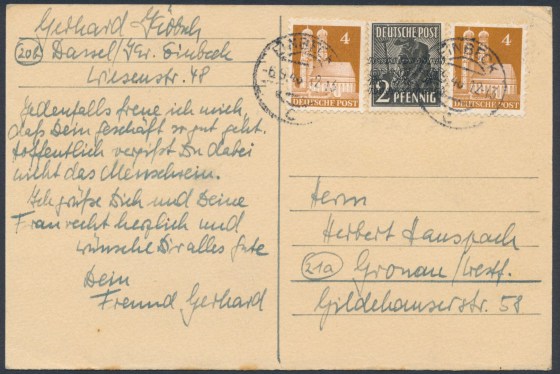 Gerhard
20b Dassel/Kr. Einbeck
Wiesenstr. 48
Jedenfalls freue ich mich
daß Dein Geschäft so gut geht.
Hoffentlich vergißt Du dabei
nicht das Menschsein.
Ich grüße Dich und Deine
Frau recht herzlich und
wünsche Dir alles gute
Dein
Freund Gerhard
4
DEUTSCHE POST
DEUTSCHE POST
2 PFENNIG
4
DEUTSCHE POST
EINBECK
C
EINBECK
C
Herrn
Herbert Hanspach
21a Gronau/Westf.
Gildehauserstr. 58